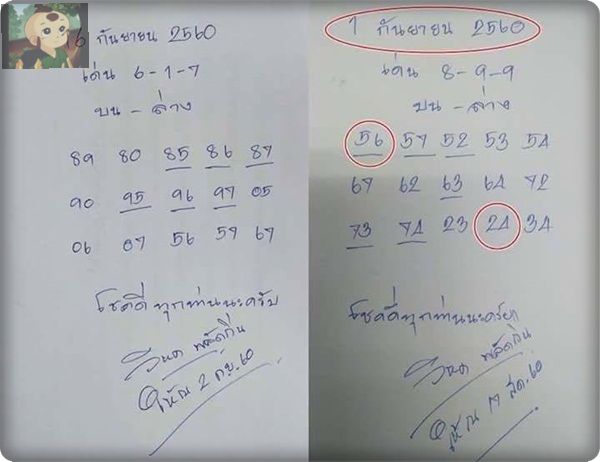 6 กันยายน 2560
เด่น 6-1-7
บน - ล่าง
89 80 85 86 87
90 95 96 97 05
06 07 56 57 67
โชคดีทุกท่านนะครับ
ให้ ณ 2 กย. 60
1 กันยายน 2560
เด่น 8-9-9
บน - ล่าง
56 57 52 53 54
67 62 63 64 72
73 74 23 24 34
โชคดีทุกท่านนะครับ
ให้ ณ 17 สค. 60